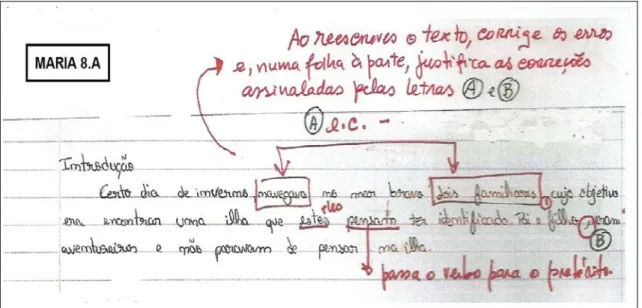 Ao reescreveres o texto, corrige os erros
MARIA 8.A
e, numa folha à parte, justifica as correções
assinaladas pelas letras A e B
A e.c. -
Introdução
Certo dia de inverno navegava no mar bravo dois familiares, cujo objetivo
era encontrar uma ilha que estes pensarão ter identificado. Pai e filho, eram
aventureiros e não paravam de pensar na ilha.
B
passa o verbo para o pretérito.